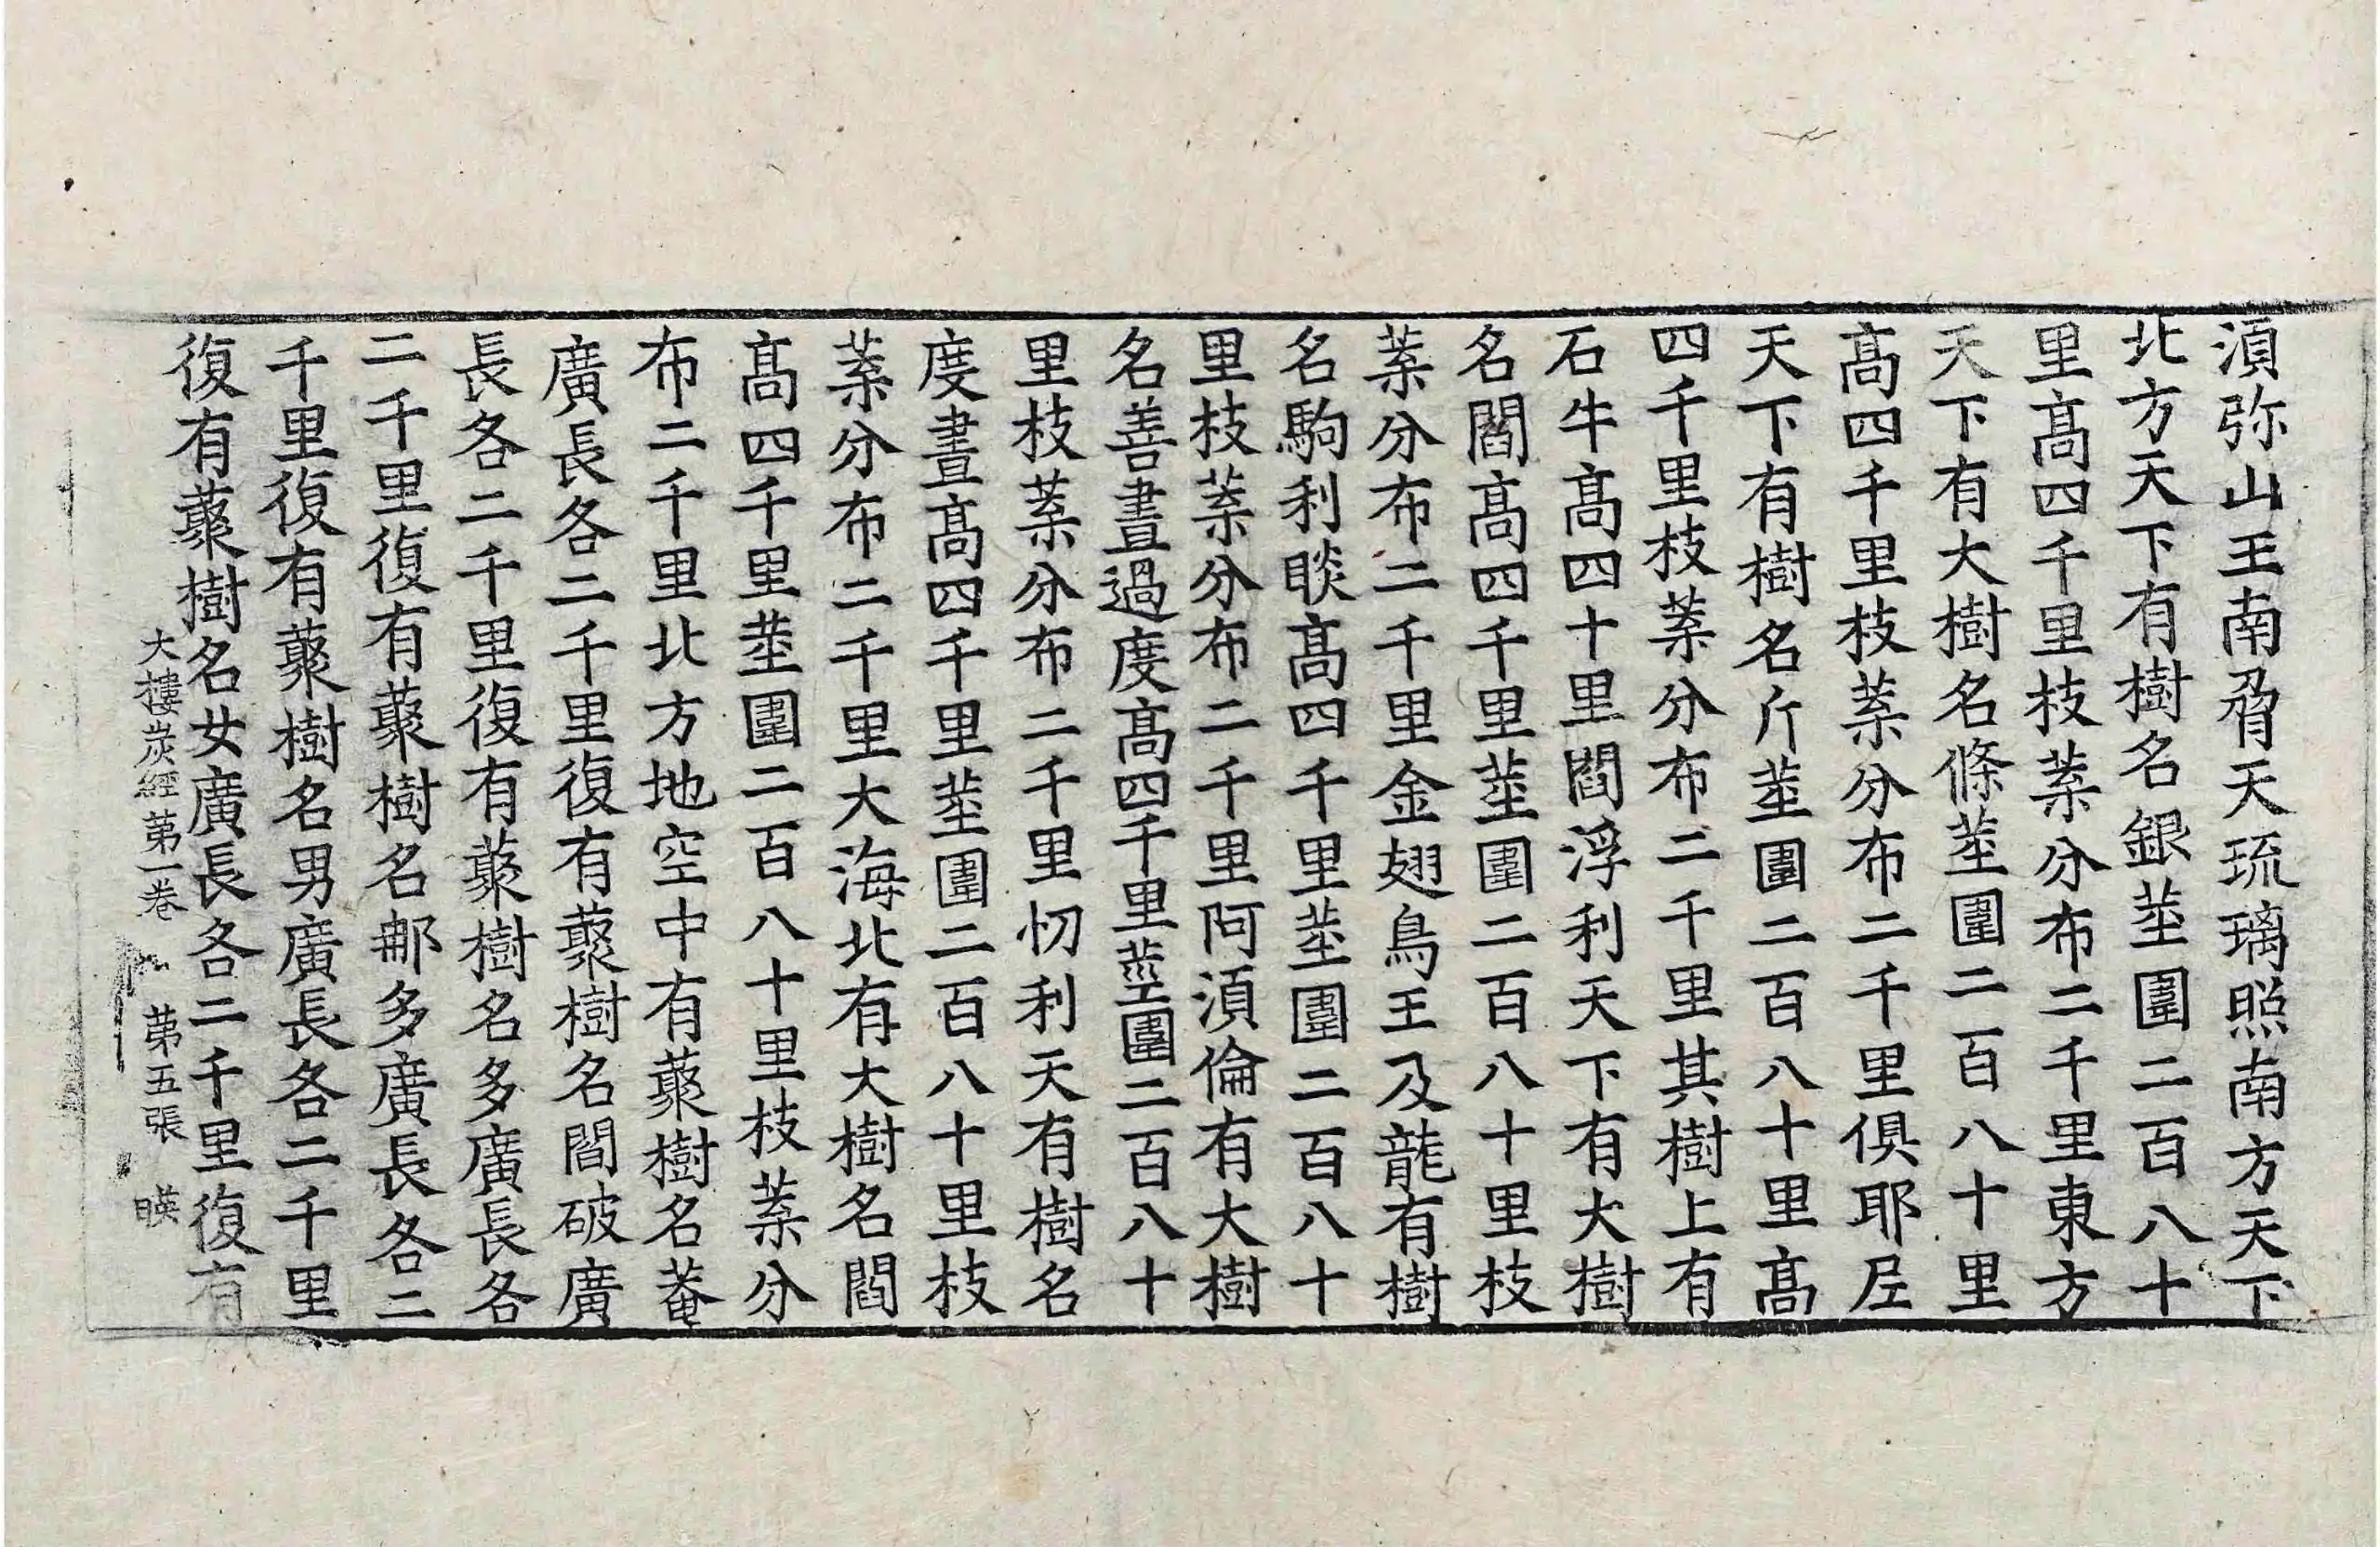 湏弥山王南脅天琉璃照南方天下
北方天下有樹名銀莖圍二百八十
里髙四千里枝葉分布二千里東方
天下有大樹名條莖圍二百八十里
髙四千里枝葉分布二千里俱耶尼
天下有樹名斤莖圍二百八十里髙
四千里枝葉分布二千里其樹上有
石牛髙四十里閻浮利天下有大樹
名閻髙四千里莖圍二百八十里枝
葉分布二千里金翅鳥王及龍有樹
名駒利睒髙四千里莖圍二百八十
里枝葉分布二千里阿湏倫有大樹
名善晝過度髙四千里莖圍二百八十
里枝葉分布二千里忉利天有樹名
度晝髙四千里莖圍二百八十里枝
葉分布二千里大海北有大樹名閻
髙四千里莖圍二百八十里枝葉分
布二千里北方地空中有藂樹名菴
廣長各二千里復有藂樹名閻破廣
長各二千里復有藂樹名多廣長各
二千里復有藂樹名𨚗多廣長各二
千里復有藂樹名男廣長各二千里
復有藂樹名女廣長各二千里復有
大樓炭經第一卷 第五張 暎